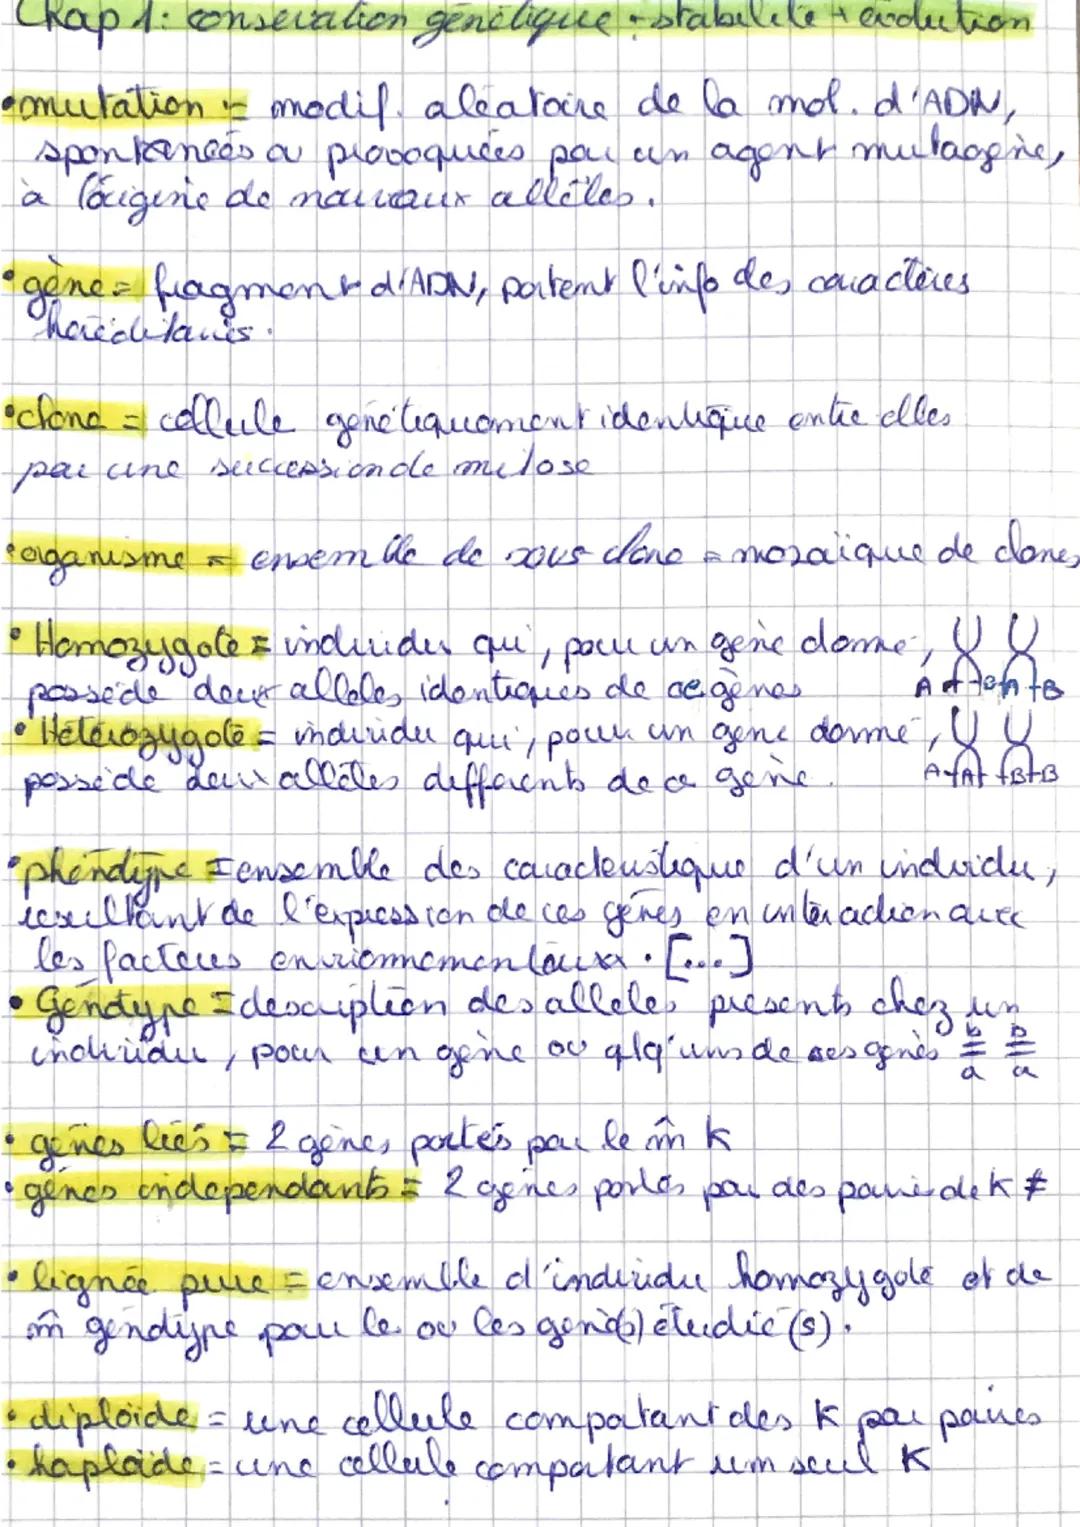 Chap 1: conservation génétique + stabilité + évolution
• mutation = modif. aléatoire de la mol. d'ADN,
spontanées ou provoquées par un agent mutagène,
à l'origine de nouveaux allèles.
• gène = fragment d'ADN, portent l'info des caractères
héréditaires.
• clone = cellule génétiquement identique entre elles
par une succession de mitose
• organisme = ensemble de sous clone = mozaïque de clones
• Homozygote = individu qui, pour un gène donné,
possède deux allèles identiques de ce gènes
• Hétérozygote = individu qui, pour un gène donné,
possède deux allèles différents de ce gène.
A A B B
• phénotype = ensemble des caractéristique d'un individu,
résultant de l'expression de ces gènes en interaction avec
les facteurs environnementaux. [...]
• Génotype = description des allèles présents chez un
individu, pour un gène ou qlq'uns de ses gènes b/a b/a
• gènes liés = 2 gènes portés par le m̂ K
• gènes indépendants = 2 gènes portés par des paire de K ≠
• lignée pure = ensemble d'individu homozygote et de
m̂ génotype pour le ou les gène(s) étudié(s).
• diploïde = une cellule comportant des K par paires
• haploïde = une cellule comportant um seul K